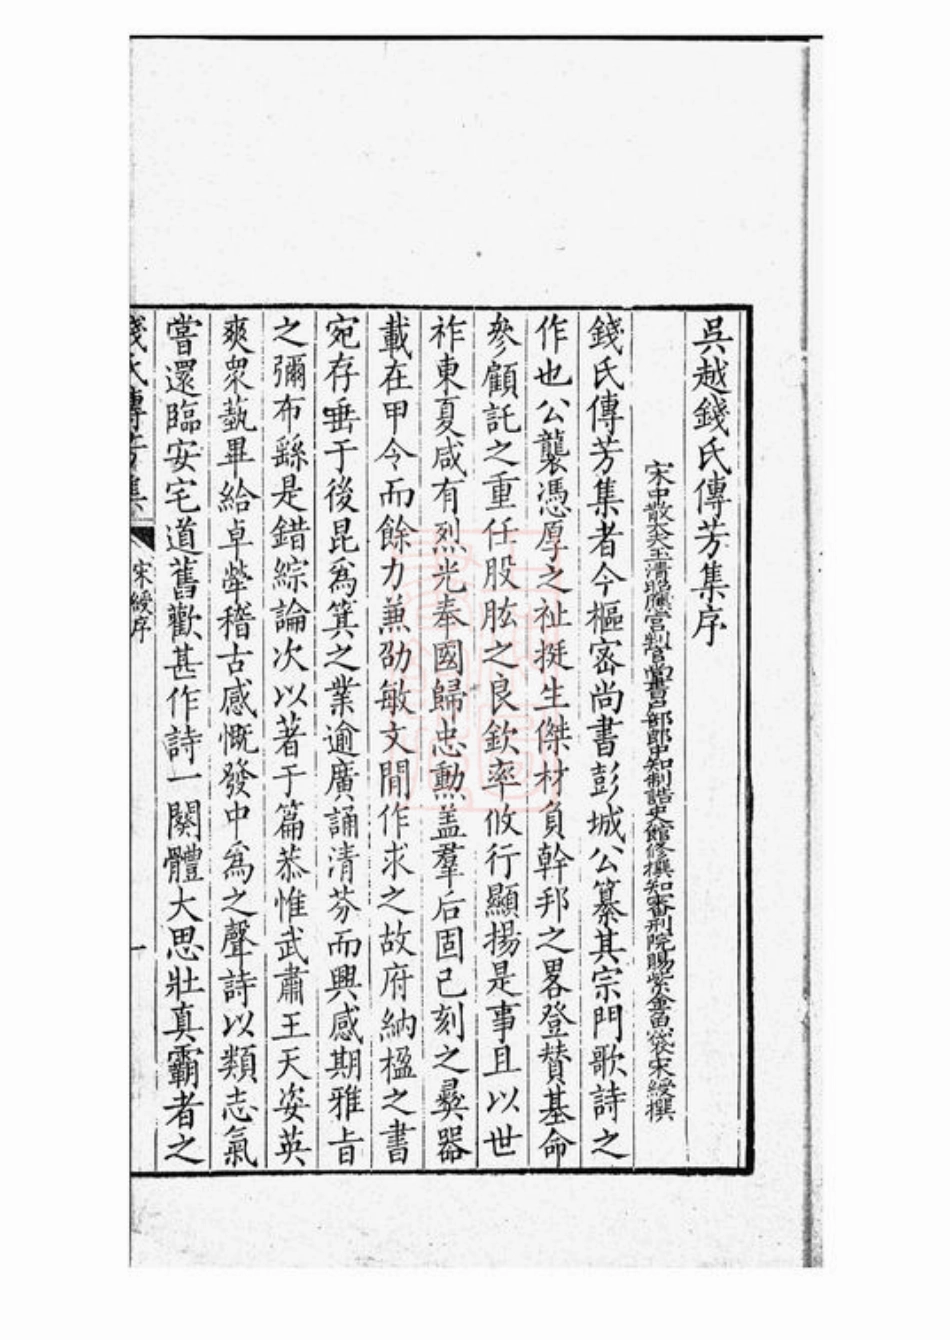 吳越錢氏傳芳集序
宋中散大夫玉清昭應宮判官尚書戶部郎中知制誥史館修撰知審刑院賜紫金魚袋宋綬撰
錢氏傳芳集者今樞密尚書彭城公纂其宗門歌詩之
作也公襲憑厚之祉挺生傑材負幹邦之畧登贊基命
參顧託之重任股肱之良欽率攸行顯揚是事且以世
祚東夏咸有烈光奉國歸忠勲盖羣后固已刻之彝器
載在甲令而餘力兼劭敏文間作求之故府納楹之書
宛存垂于後昆爲箕之業逾廣誦清芬而興感期雅旨
之彌布繇是錯綜論次以著于篇恭惟武肅王天姿英
爽衆藝畢給卓犖稽古感慨發中爲之聲詩以類志氣
嘗還臨安宅道舊歡甚作詩一闋體大思壯真霸者之
錢氏傳芳集
宋綬序
一